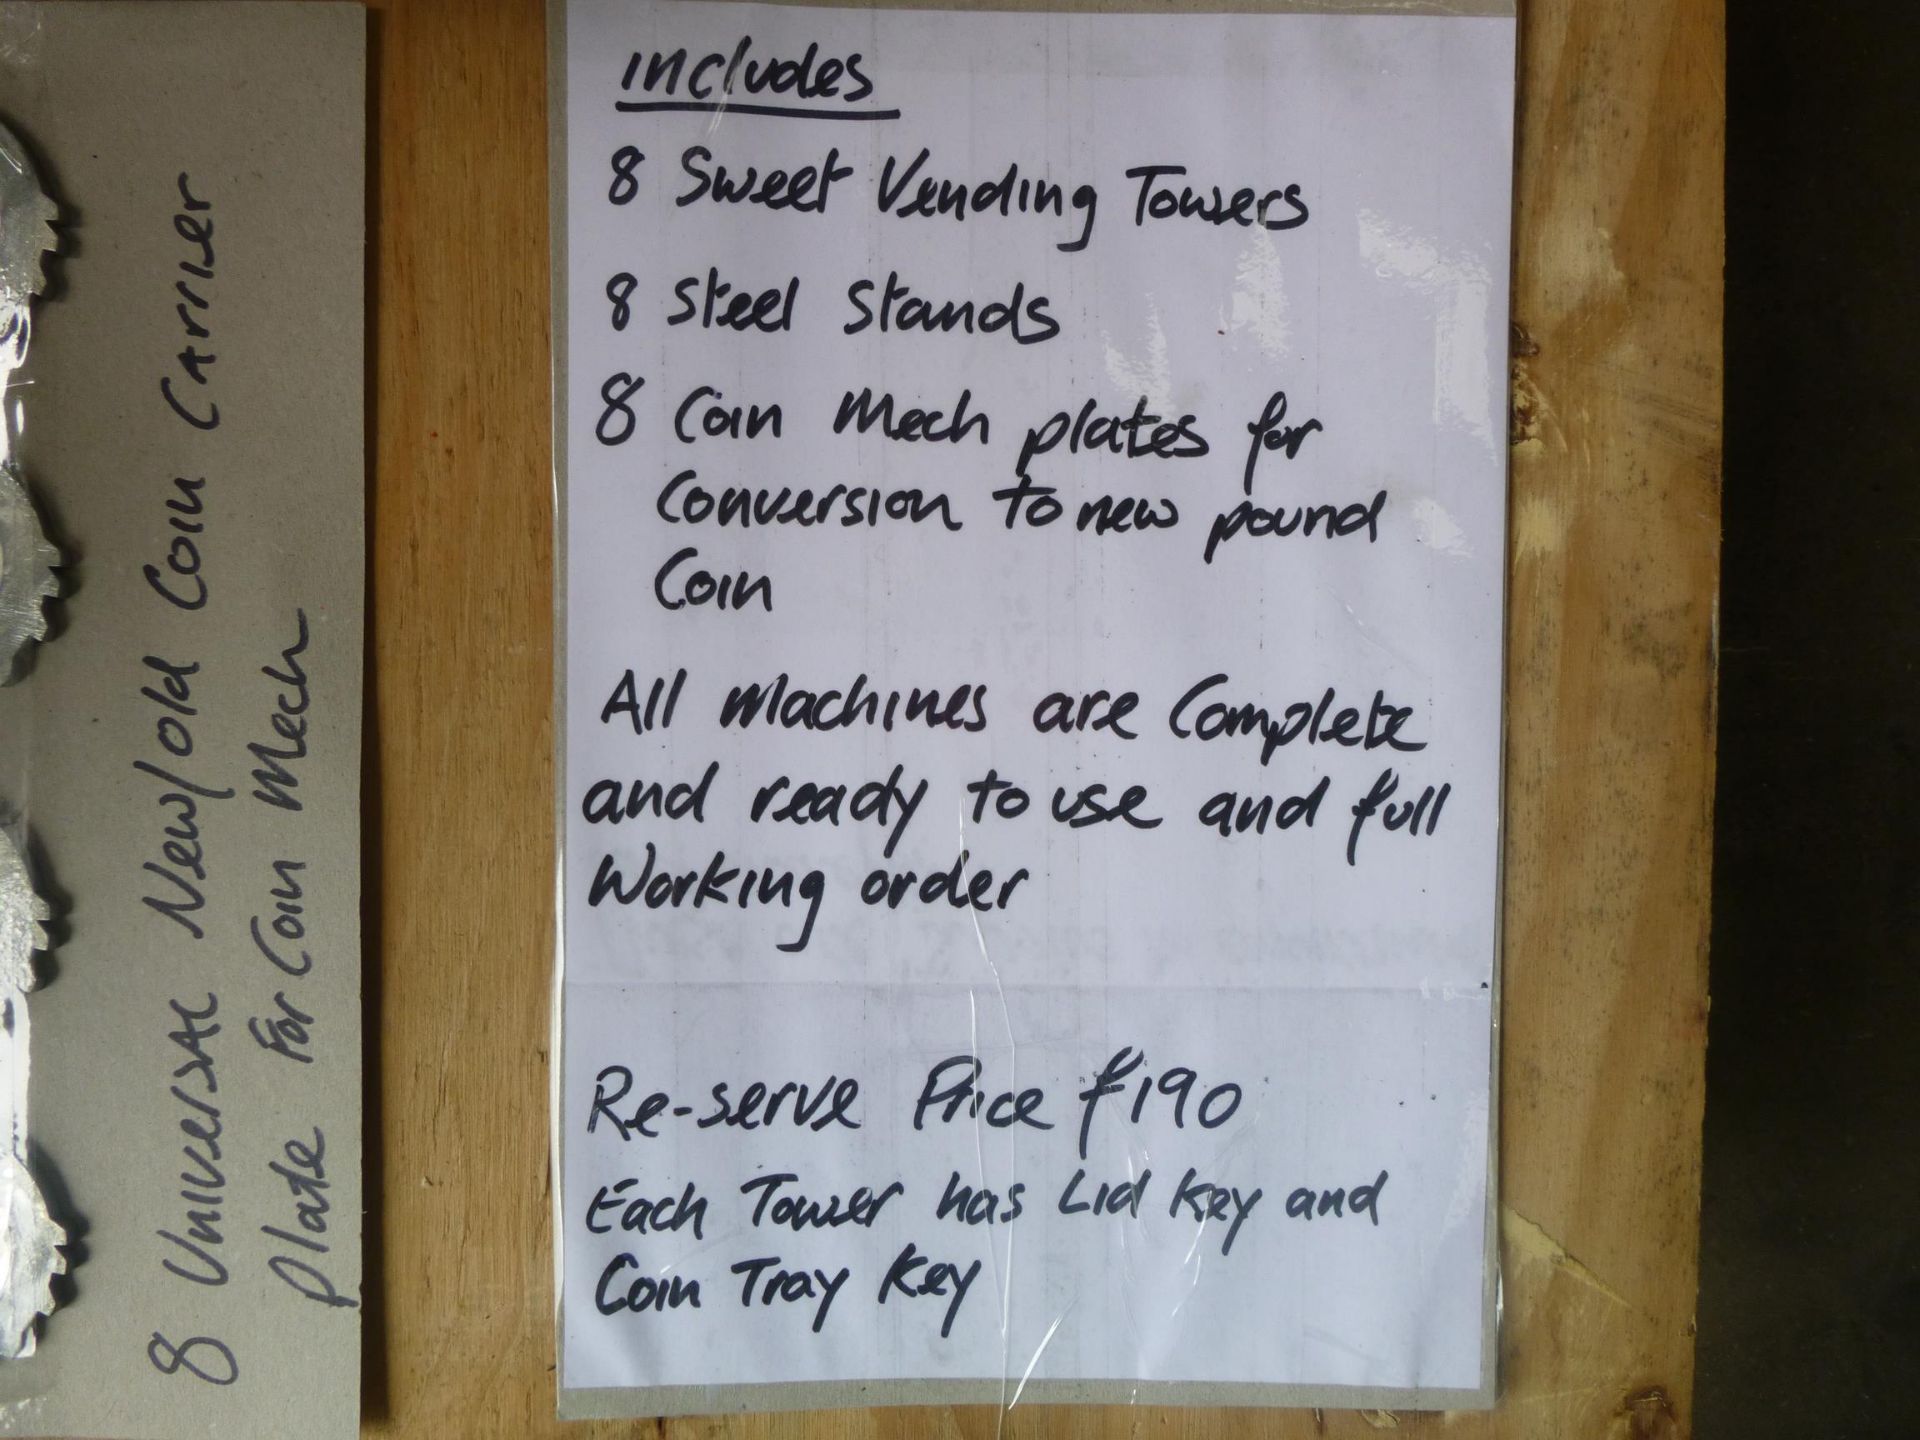 8 Universal New/old Coin Carrier
Plate For Coin Mech
includes
8 Sweet Vending Towers
8 Steel Stands
8 Coin Mech plates for
Conversion to new pound
Coin
All machines are Complete
and ready to use and full
Working order
Re-serve Price £190
Each Tower has Lid key and
Coin Tray key